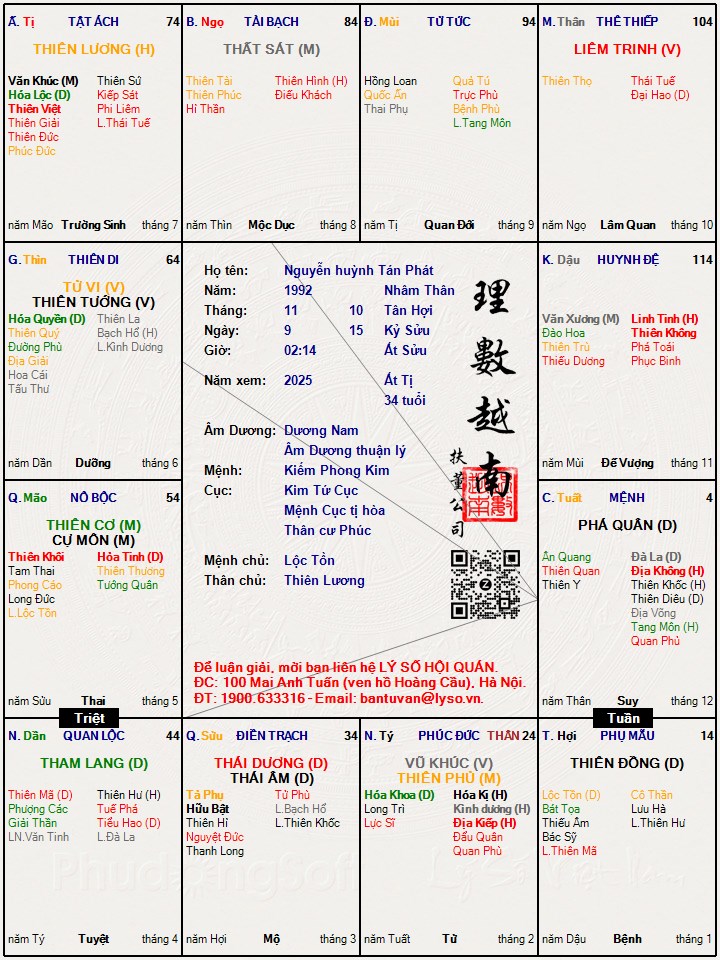 Ấ. Tị TẬT ÁCH 74
THIÊN LƯƠNG (H)
Văn Khúc (M) Thiên Sứ
Hóa Lộc (D) Kiếp Sát
Thiên Việt Phi Liêm
Thiên Giải L.Thái Tuế
Thiên Đức
Phúc Đức
năm Mão Trường Sinh tháng 7
B. Ngọ TÀI BẠCH 84
THẤT SÁT (M)
Thiên Tài Thiên Hình (H)
Thiên Phúc Điếu Khách
Hỉ Thần
năm Thìn Mộc Dục tháng 8
Đ. Mùi TỬ TỨC 94
Hồng Loan Quả Tú
Quốc Ấn Trực Phù
Thai Phụ Bệnh Phù
L.Tang Môn
năm Tị Quan Đới tháng 9
M. Thân THÊ THIẾP 104
LIÊM TRINH (V)
Thiên Thọ Thái Tuế
Đại Hao (D)
năm Ngọ Lâm Quan tháng 10
G. Thìn THIÊN DI 64
TỬ VI (V)
THIÊN TƯỚNG (V)
Hóa Quyền (D) Thiên La
Thiên Quý Bạch Hổ (H)
Đường Phù L.Kình Dương
Địa Giải
Hoa Cái
Tấu Thư
năm Dần Dưỡng tháng 6
Họ tên: Nguyễn huỳnh Tán Phát
Năm: 1992 Nhâm Thân
Tháng: 11 10 Tân Hợi
Ngày: 9 15 Kỷ Sửu
Giờ: 02:14 Ất Sửu
Năm xem: 2025 Ất Tị
34 tuổi
Âm Dương: Dương Nam
Âm Dương thuận lý
Mệnh: Kiếm Phong Kim
Cục: Kim Tứ Cục
Mệnh Cục tị hòa
Thân cư Phúc
Mệnh chủ: Lộc Tồn
Thân chủ: Thiên Lương
理數越南
扶董公司
Để luận giải, mời bạn liên hệ LÝ SỐ HỘI QUÁN.
ĐC: 100 Mai Anh Tuấn (ven hồ Hoàng Cầu), Hà Nội.
ĐT: 1900.633316 - Email: bantuvan@lyso.vn.
K. Dậu HUYNH ĐỆ 114
Văn Xương (M) Linh Tinh (H)
Đào Hoa Thiên Không
Thiên Trù Phá Toái
Thiếu Dương Phục Binh
năm Mùi Đế Vượng tháng 11
Q. Mão NÔ BỘC 54
THIÊN CƠ (M)
CỰ MÔN (M)
Thiên Khôi Hỏa Tinh (D)
Tam Thai Thiên Thương
Phong Cáo Tướng Quân
Long Đức
L.Lộc Tồn
năm Sửu Thai tháng 5
C. Tuất MỆNH 4
PHÁ QUÂN (D)
Ân Quang Đà La (D)
Thiên Quan Địa Không (H)
Thiên Y Thiên Khốc (H)
Thiên Diêu (D)
Địa Võng
Tang Môn (H)
Quan Phủ
năm Thân Suy tháng 12
Triệt
Tuần
N. Dần QUAN LỘC 44
THAM LANG (D)
Thiên Mã (D) Thiên Hư (H)
Phượng Các Tuế Phá
Giải Thần Tiểu Hao (D)
LN.Văn Tinh L.Đà La
năm Tý Tuyệt tháng 4
Q. Sửu ĐIỀN TRẠCH 34
THÁI DƯƠNG (D)
THÁI ÂM (D)
Tả Phụ Tử Phù
Hữu Bật L.Bạch Hổ
Thiên Hỉ L.Thiên Khốc
Nguyệt Đức
Thanh Long
năm Hợi Mộ tháng 3
N. Tý PHÚC ĐỨC THÂN 24
VŨ KHÚC (V)
THIÊN PHỦ (M)
Hóa Khoa (D) Hóa Kị (H)
Long Trì Kình dương (H)
Lực Sĩ Địa Kiếp (H)
Đẩu Quân
Quan Phù
năm Tuất Tử tháng 2
T. Hợi PHỤ MẪU 14
THIÊN ĐỒNG (D)
Lộc Tồn (D) Cô Thần
Bát Tọa Lưu Hà
Thiếu Âm L.Thiên Hư
Bác Sỹ
L.Thiên Mã
năm Dậu Bệnh tháng 1